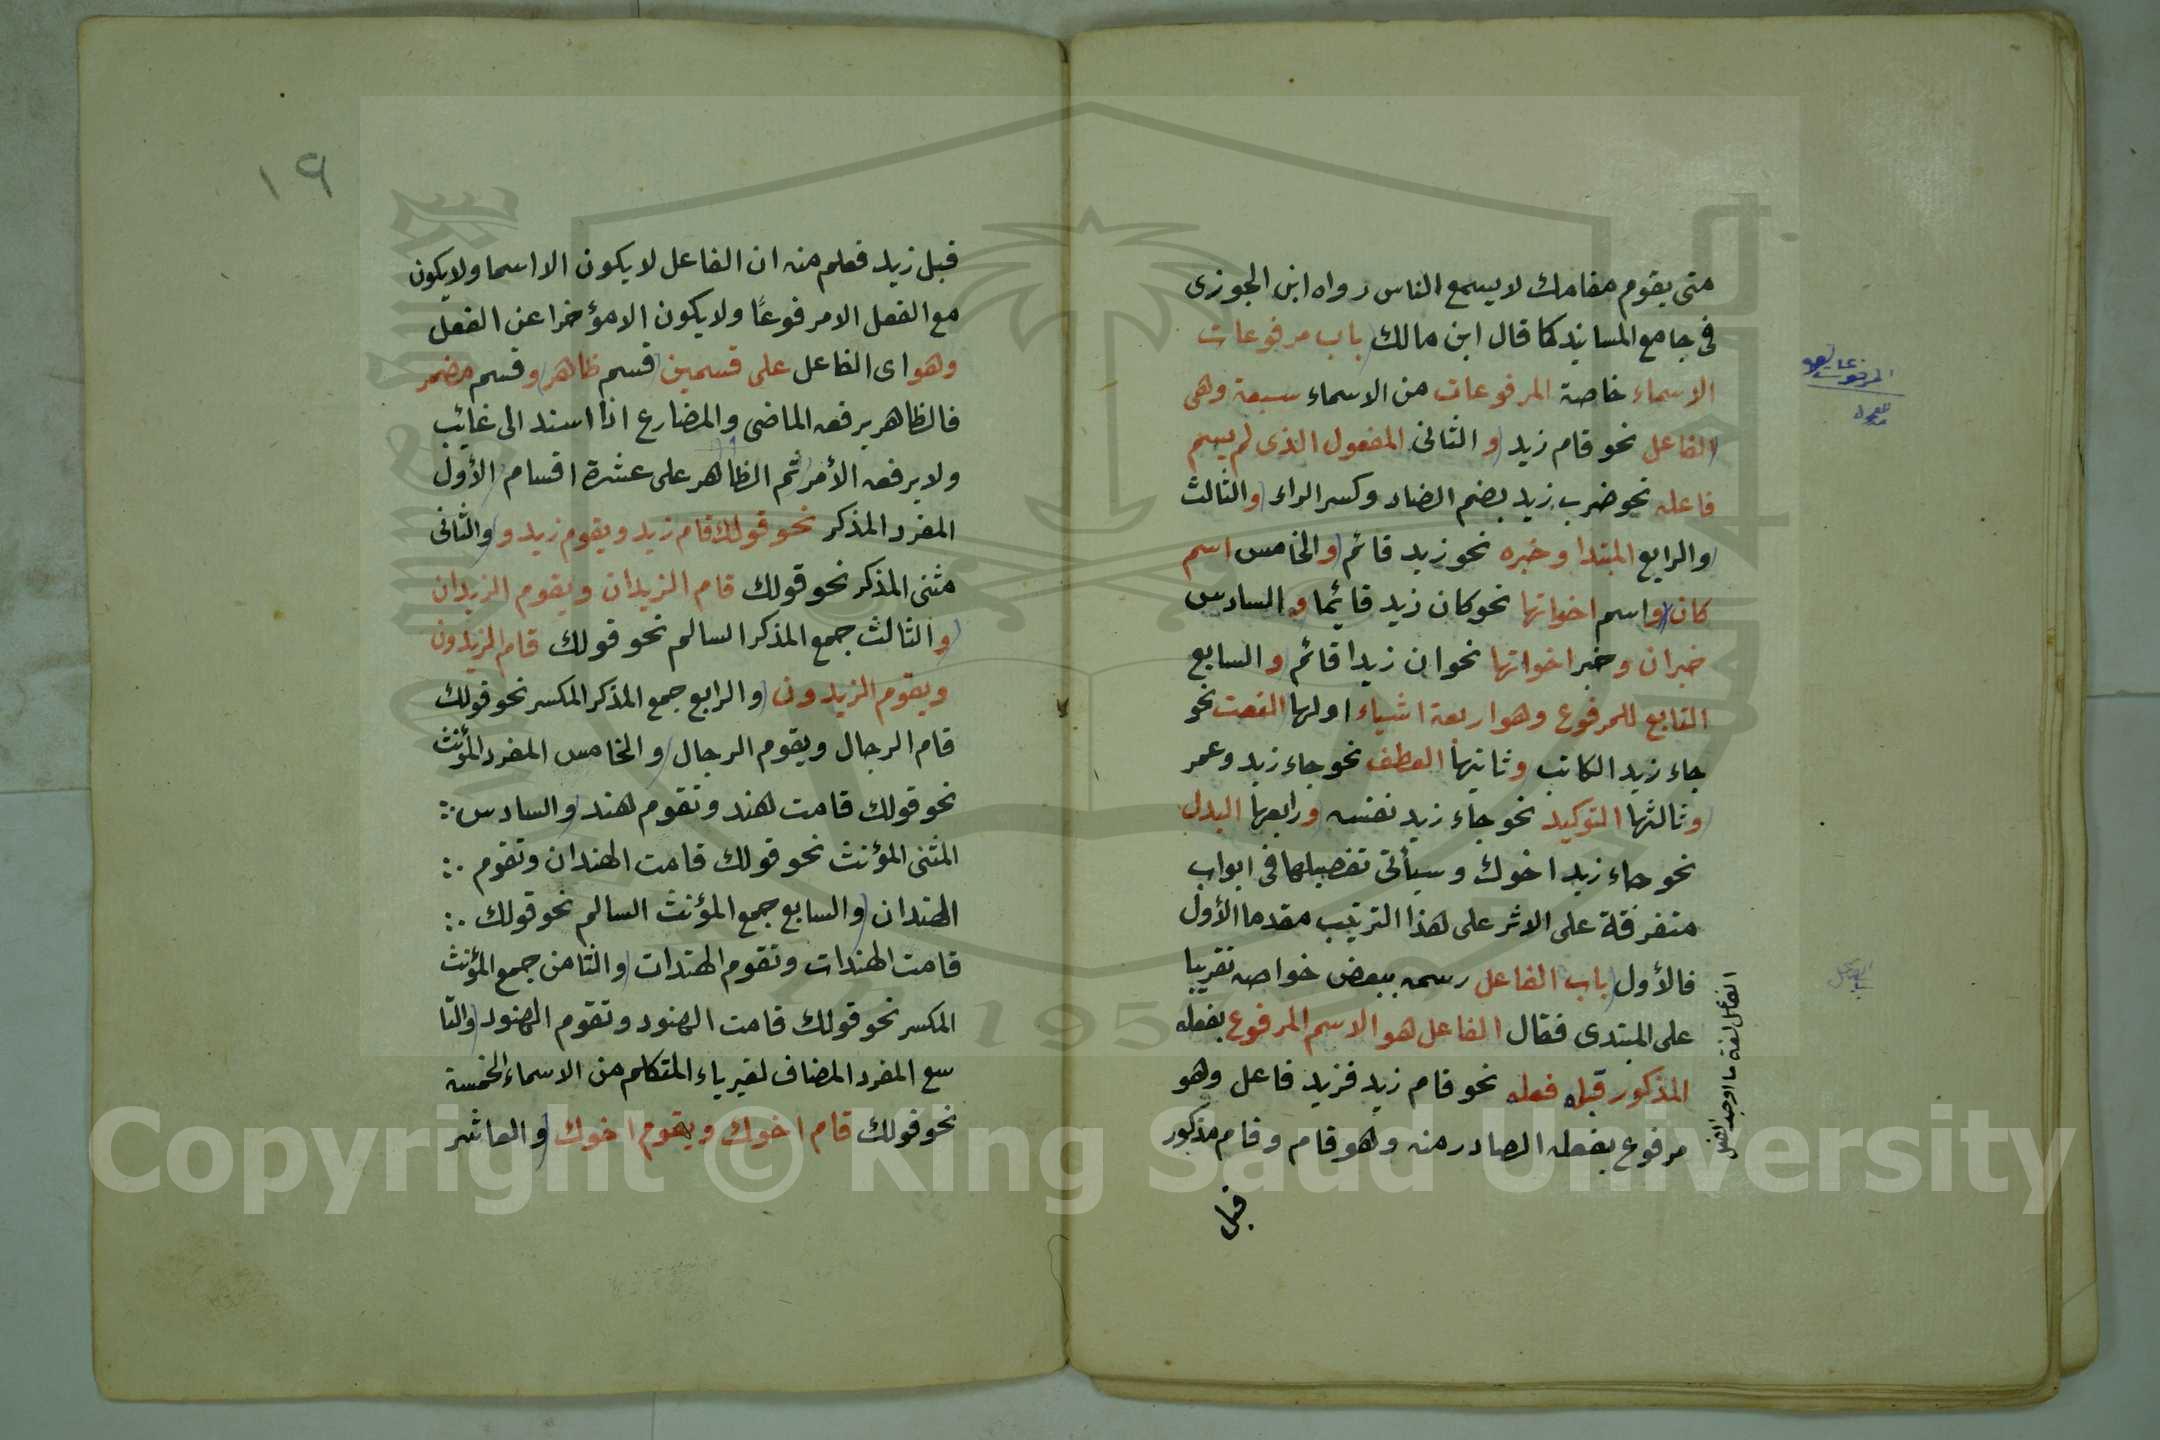 متى يقوم مقامك لا يسمع الناس رواه ابن الجوزى
فى جامع المسانيد كما قال ابن مالك باب مرفوعات
الاسماء خاصة المرفوعات من الاسماء سبعة وهى
الفاعل نحو قام زيد والثانى المفعول الذى لم يسم
فاعله نحو ضرب زيد بضم الضاد وكسر الراء والثالث
والرابع المبتدا وخبره نحو زيد قائم والخامس اسم
كان واسم اخواتها نحو كان زيد قائما والسادس
خبر ان وخبر اخواتها نحو ان زيدا قائم والسابع
التابع للمرفوع وهو اربعة اشياء اولها النعت نحو
جاء زيد الكاتب وثانيها العطف نحو جاء زيد وعمر
وثالثها التوكيد نحو جاء زيد نفسه ورابعها البدل
نحو جاء زيد اخوك وسيأتى تفصيلها فى ابواب
متفرقة على الاثر على هذا الترتيب مقدما الأول
فالأول باب الفاعل رسمه ببعض خواصه تقريبا
على المبتدى فقال الفاعل هو الاسم المرفوع بفعله
المذكور قبله فعله نحو قام زيد فزيد فاعل وهو
مرفوع بفعله الصادر منه وهو قام وقام مذكور
قبل
الفاعل لغة ما اوجد الفعل
١٩
قبل زيد فعلم منه ان الفاعل لا يكون الا اسما ولا يكون
مع الفعل الا مرفوعًا ولا يكون الا مؤخرا عن الفعل
وهو اى الفاعل على قسمين قسم ظاهر وقسم مضمر
فالظاهر يرفعه الماضى والمضارع اذا اسند الى غائب
ولا يرفعه الأمر ثم الظاهر على عشرة اقسام الأول
المفرد المذكر نحو قولك قام زيد ويقوم زيد و والثانى
مثنى المذكر نحو قولك قام الزيدان ويقوم الزيدان
والثالث جمع المذكر السالم نحو قولك قام الزيدون
ويقوم الزيدون والرابع جمع المذكر المكسر نحو قولك
قام الرجال ويقوم الرجال والخامس المفرد المؤنث
نحو قولك قامت هند وتقوم هند والسادس
المثنى المؤنث نحو قولك قامت الهندان وتقوم
الهندان والسابع جمع المؤنث السالم نحو قولك
قامت الهندات وتقوم الهندات والثامن جمع المؤنث
المكسر نحو قولك قامت الهنود وتقوم الهنود والتا
سع المفرد المضاف لغير ياء المتكلم من الاسماء الخمسة
نحو قولك قام اخوك ويقوم اخوك والعاشر
Copyright © King Saud University
1957